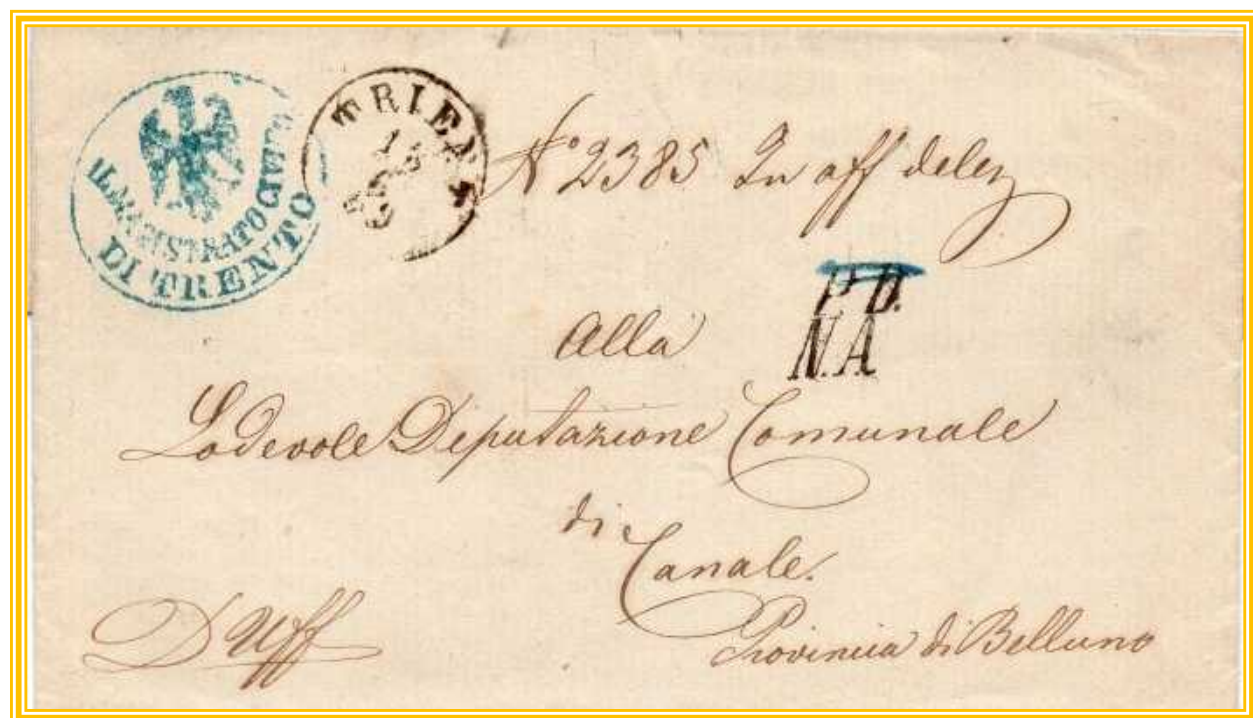 IL MAGISTRATO CIVICO
DI TRENTO
TRIENT
N° 2385 In aff deleg
P.D.
N.A
Alla
Lodevole Deputazione Comunale
di
Canale.
D'Uff
Provincia di Belluno